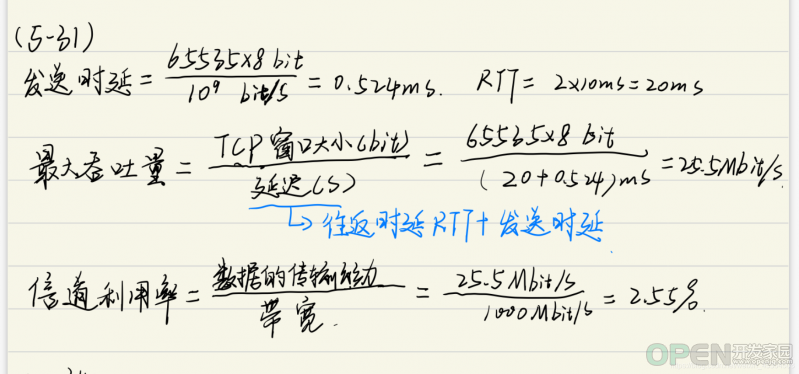 (5-31)
发送时延 = 65535×8 bit / 10⁹ bit/s = 0.524ms. RTT = 2×10ms = 20ms
最大吞吐量 = TCP窗口大小(bit) / 延迟(s) = 65535×8 bit / (20+0.524)ms = 25.5Mbit/s.
往返时延RTT+发送时延
信道利用率 = 数据的传输能力 / 带宽. = 25.5Mbit/s / 1000Mbit/s = 2.55%.
OPEN开发家园